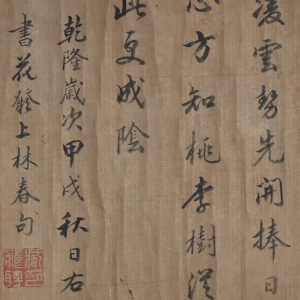 凌雲勢先開捧日
心方知桃李樹從
此更成陰
乾隆歲次甲戌秋日右
書花發上林春句